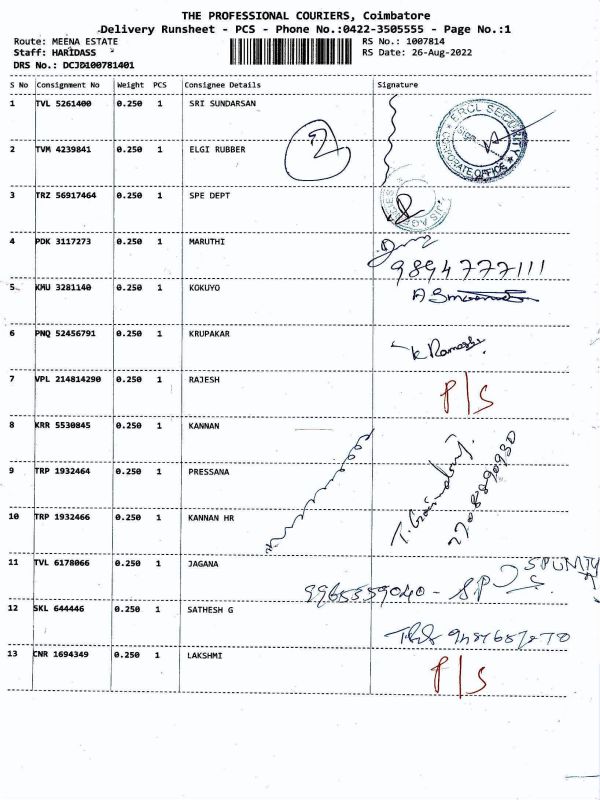 THE PROFESSIONAL COURIERS, Coimbatore
Delivery Runsheet - PCS - Phone No.:0422-3505555 - Page No.:1
Route: MEENA ESTATE RS No.: 1007814
Staff: HARIDASS RS Date: 26-Aug-2022
DRS No.: DCJD100781401
S No Consignment No Weight PCS Consignee Details Signature
1 TVL 5261400 0.250 1 SRI SUNDARSAN
ERCL SECURITY
CORPORATE OFFICE
2 TVM 4239841 0.250 1 ELGI RUBBER 2
3 TRZ 56917464 0.250 1 SPE DEPT
4 PDK 3117273 0.250 1 MARUTHI
9894777111
5 KMU 3281140 0.250 1 KOKUYO
6 PNQ 52456791 0.250 1 KRUPAKAR K Ramesh
7 VPL 214814290 0.250 1 RAJESH P/S
8 KRR 5530845 0.250 1 KANNAN
9 TRP 1932464 0.250 1 PRESSANA
10 TRP 1932466 0.250 1 KANNAN HR
11 TVL 6178066 0.250 1 JAGANA
9965359040 - S.P
12 SKL 644446 0.250 1 SATHESH G
13 CNR 1694349 0.250 1 LAKSHMI P/S